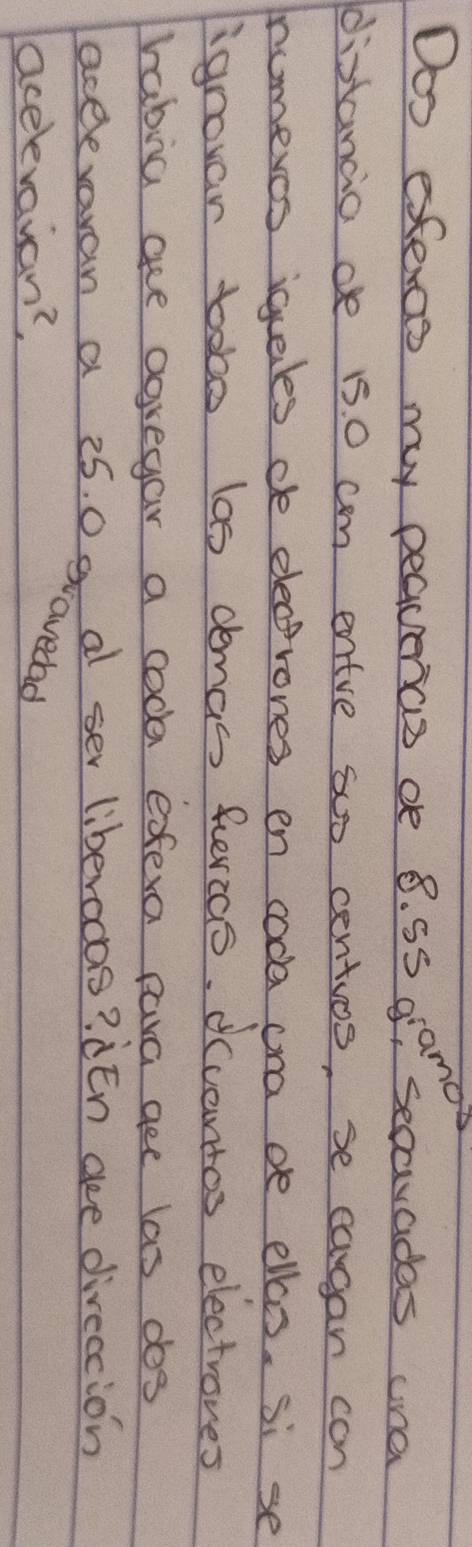 Dos esferas muy pequeñas de 8.55 gramos, separadas una
distancia de 15.0 cm entre sus centros, se cargan con
numeros iguales de electrones en cada una de ellas. Si se
ignoran todas las demas fuerzas. ¿Cuantos electrones
habria que agregar a cada esfera para que las dos
aceleraran a 25.0 g al ser liberadas? ¿En que dirección
gravedad
aceleraran?